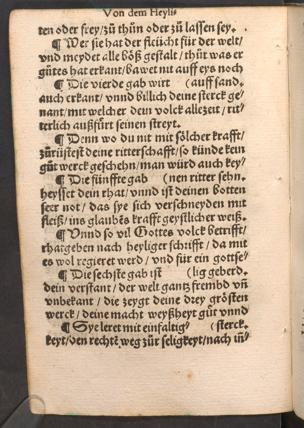 Von dem Heyli⸗
ten oder frey/ zů thůn oder zů lassen sey.
¶ Wer sie hat der fleücht für der welt/
vnd meydet alle böß gestalt / thůt was er
gůtes hat erkant/ bawet nit auff eys noch
¶ Die vierde gab wirt (auff sand.
auch erkant/ vnnd billich deine sterck ge⸗
nant/ mit welcher dein volck allezeit / rit⸗
terlich außfürt seinen streyt.
¶ Denn wo du nit mit sölcher krafft/
zůrüstest deine ritterschafft/ so künde kein
gůt werck geschehn/ man würd auch key⸗
¶ Die fünffte gab (nen ritter sehn.
heysset dein rhat/ vnnd ist deinen botten
seer not/ das sye sich verschneyden mit
fleiß/ ins glaubēs krafft geystlicher weiß.
¶ Vnnd so vil Gottes volck betrifft/
rhatgeben nach heyliger schrifft/ da mit
es wol regieret werd/ vnd für ein gottse⸗
¶ Die sechste gab ist (lig geberd.
dein verstant/ der welt gantz frembd vñ
vnbekant/ die zeygt deine drey grösten
werck/ deine macht weyßheyt gůt vnnd
¶ Sye leret mit einfaltig⸗ (sterck.
keyt/ den rechtē weg zůr seligkeyt/ nach iñ⸗